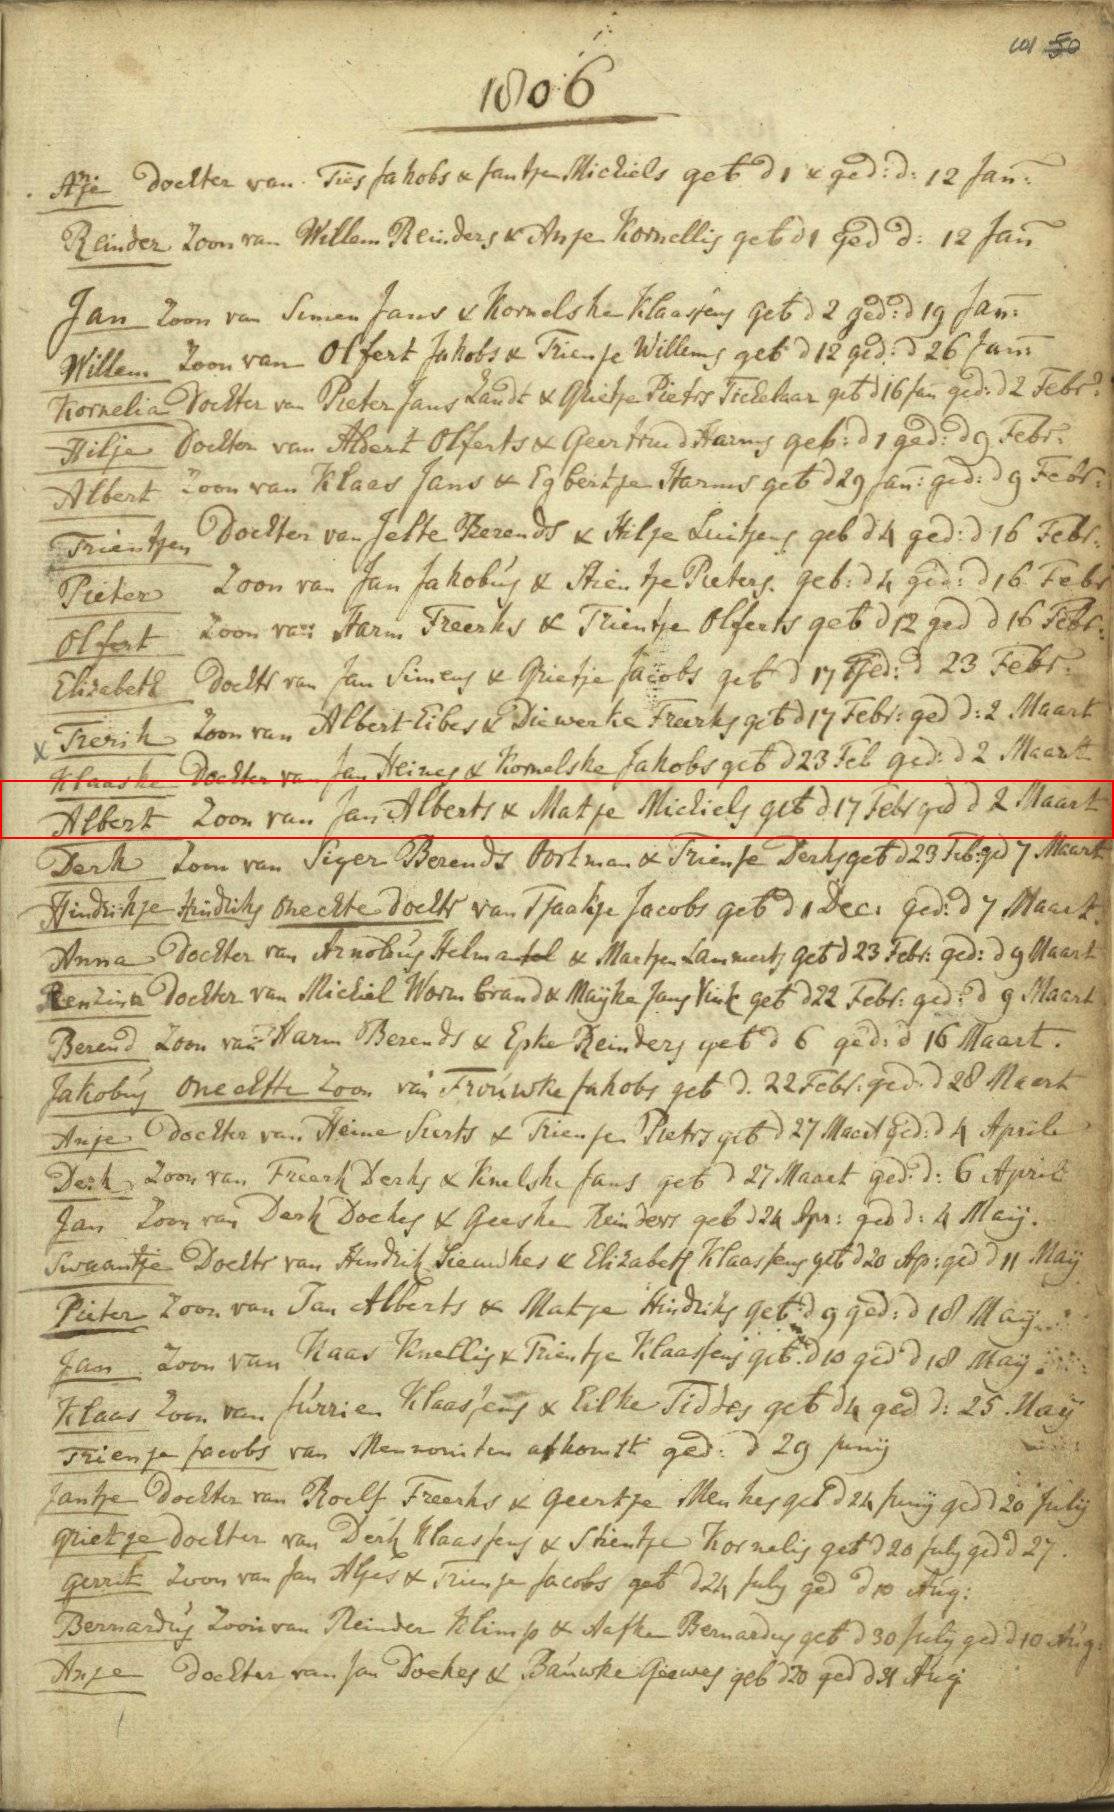 101 50
1806
Aije Dochter van Ties Jakobs & Jantjen Michiels geb d 1 & ged: d: 12 Jan:
Reinder Zoon van Willem Reinders & Anje Kornellis geb d 1 ged d: 12 Jan
Jan Zoon van Simen Jans & Kornelske Klaasens geb d 2 ged: d 19 Jan:
Willem Zoon van Olfert Jakobs & Trientje Willems geb d 12 ged: d 26 Jan:
Kornelia Dochter van Pieter Jans Landt & Grietje Pieters Tichelaar geb d 16 Jan ged: d 2 Febr:
Hilje Dochter van Albert Olferts & Geertruid Harms geb: d 1 ged: d 9 Febr:
Albert Zoon van Klaas Jans & Egbertje Harms geb d 29 Jan: ged: d 9 Febr:
Trientjen Dochter van Jelte Berends & Hilje Luitjens geb d 4 ged: d 16 Febr:
Pieter Zoon van Jan Jakobus & Stientje Pieters. geb: d 4 ged: d 16 Febr
Olfert Zoon van Harm Freerks & Trientje Olferts geb d 12 ged d 16 Febr:
Elisabeth Dochtr van Jan Simens & Grietje Jacobs geb d 17 ged: d 23 Febr:
x Frerik Zoon van Albert Eibes & Diewerke Freerks geb d 17 Febr: ged d: 2 Maart
Klaaske Dochter van Jan Heines & Kornelske Jakobs geb d 23 Feb ged: d 2 Maart
Albert Zoon van Jan Alberts & Matje Michiels geb d 17 Febr ged d 2 Maart
Derk Zoon van Siger Berends Oortman & Trientje Derks geb d 23 Feb: ged 7 Maart
Hindrikje Hindriks onechte dochtr van Tjaaltje Jacobs geb d 1 Dec: ged: d 7 Maart.
Anna Dochter van Arnoldus Helmantel & Martjen Lammerts geb d 23 Febr: ged: d 9 Maart
Rensina Dochter van Michiel Wormbrand & Maijke Jans Vink geb d 22 Febr: ged: d 9 Maart
Berend Zoon van Harm Berends & Epke Reinders geb d 6 ged: d 16 Maart.
Jakobus onechte Zoon van Frouwke Jakobs geb d. 22 Febr: ged: d 28 Maart
Anje dochter van Heine Sierts & Trientje Pieters geb d 27 Maart ged: d 4 Aprile
Derk Zoon van Freerk Derks & Knelske Jans geb d 27 Maart ged: d: 6 April
Jan Zoon van Derk Doekes & Geeske Reinders geb d 24 Apr: ged d: 4 Maij.
Swaantje Dochtr van Hindrik Sieuwkes & Elizabeth Klaassens geb d 20 Ap: ged d 11 Maij
Pieter Zoon van Jan Alberts & Matje Hindriks geb: d 9 ged: d 18 Maij
Jan Zoon van Klaas Knellis & Trientje Klaassens geb: d 10 ged d 18 Maij.
Klaas Zoon van Jurrien Klaasens & Eilke Tiddes geb d 4 ged d: 25 Maij
Trientje Jacobs van Mennoniten afkomst ged: d 29 Junij
Jantje Dochter van Roelf Freerks & Geertje Menkes geb d 24 Junij ged d 20 Julij
Grietje dochter van Derk Klaassens & Stientje Kornelis geb d 20 July ged d 27.
Gerrit Zoon van Jan Aljes & Trientje Jacobs geb d 24 July ged d 10 Aug:
Bernardus Zoon van Reinder Klimp & Aafke Bernardus geb d 30 July ged d 10 Aug:
Anje dochter van Jan Doekes & Bauwke Geewes geb d 20 ged d 31 Aug